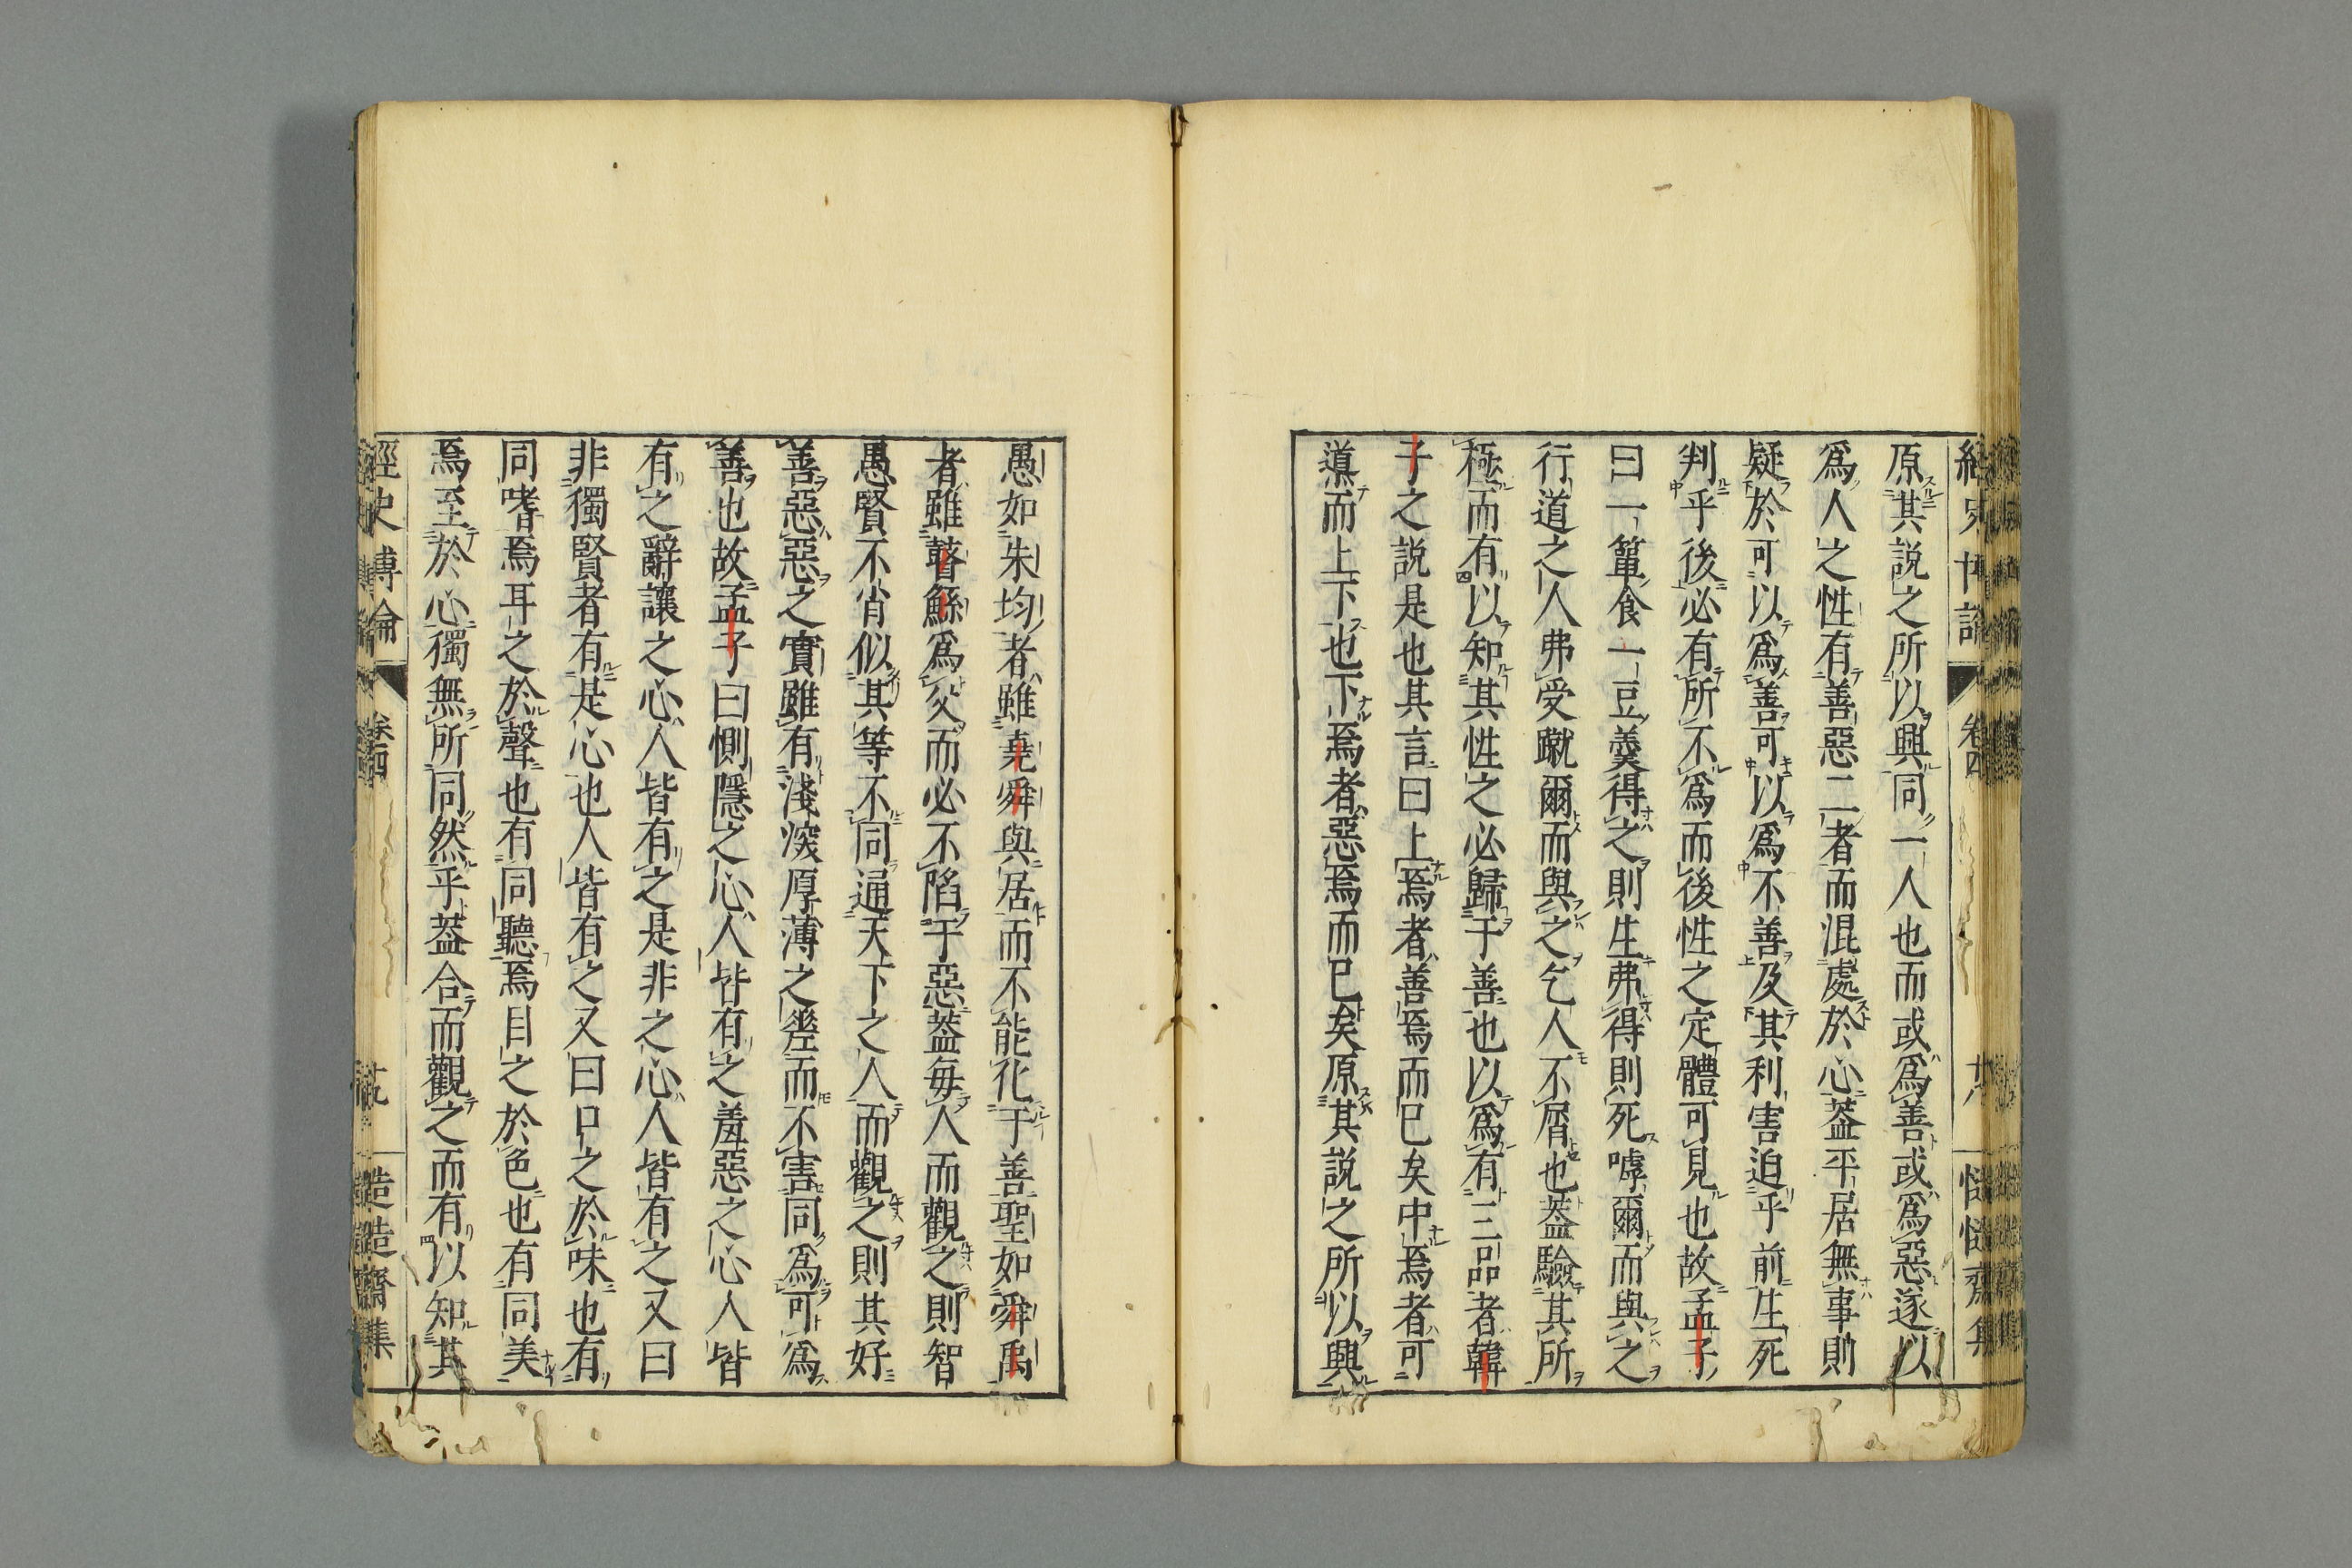 原其説之所以興同一人也而或爲善或爲惡遂以
爲人之性有善惡二者而混處於心葢平居無事則
疑於可以爲善可以爲不善及其利害迫乎前生死
判乎後必有所不爲而後性之定體可見也故孟子
曰一簞食一豆羹得之則生弗得則死嘑爾而與之
行道之人弗受蹴爾而與之乞人不屑也葢驗其所
極而有以知其性之必歸于善也以爲有三品者韓
子之説是也其言曰上焉者善焉而已矣中焉者可
道而上下也下焉者惡焉而已矣原其説之所以興
愚如朱均者雖堯舜與居而不能化于善聖如舜禹
者雖瞽鯀爲父而必不陷于惡葢每人而觀之則智
愚賢不肖似其等不同通天下之人而觀之則其好
善惡惡之實雖有淺深厚薄之差而不害同爲可爲
善也故孟子曰惻隱之心人皆有之羞惡之心人皆
有之辭讓之心人皆有之是非之心人皆有之又曰
非獨賢者有是心也人皆有之又曰口之於味也有
同嗜焉耳之於聲也有同聽焉目之於色也有同美
焉至於心獨無所同然乎葢合而觀之而有以知其
經史博論
卷四